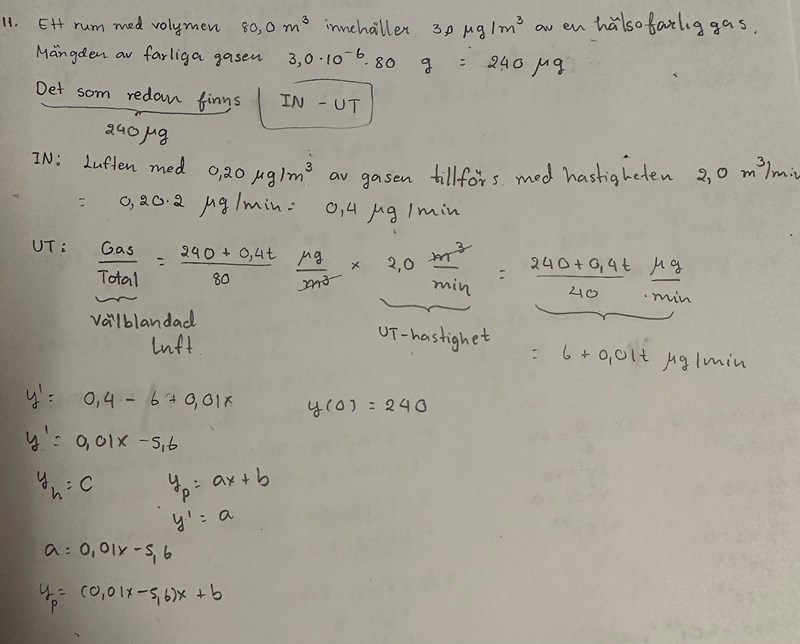 11. Ett rum med volymen 80,0 m³ innehåller 3,0 µg/m³ av en hälsofarlig gas.
Mängden av farliga gasen 3,0·10⁻⁶·80 g = 240 µg
Det som redan finns | IN - UT
240 µg
IN: Luften med 0,20 µg/m³ av gasen tillförs med hastigheten 2,0 m³/min
= 0,20·2 µg/min = 0,4 µg/min
UT: Gas/Total = (240 + 0,4t)/80 µg/m³ × 2,0 m³/min = (240 + 0,4t)/40 µg/min
Välblandad luft
UT-hastighet
= 6 + 0,01t µg/min
y' = 0,4 - 6 + 0,01x y(0) = 240
y' = 0,01x - 5,6
y_h = C y_p = ax + b
y' = a
a = 0,01x - 5,6
y_p = (0,01x - 5,6)x + b